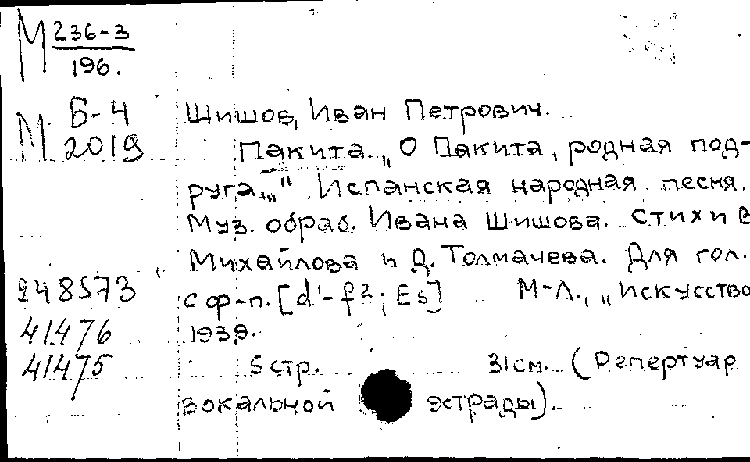 М 236-3
196.
М Б-4
2019
Шишов, Иван Петрович.
Пакита. „О Пакита, родная под-
руга..." Испанская народная песня.
Муз. обраб. Ивана Шишова. Стихи В
Михайлова и Д. Толмачева. Для гол.
248573 с ф-п. [d'-f²; Es] М-Л., „Искусство
41476 1939.
41475 5 стр. 31 см. (Репертуар
вокальной эстрады).